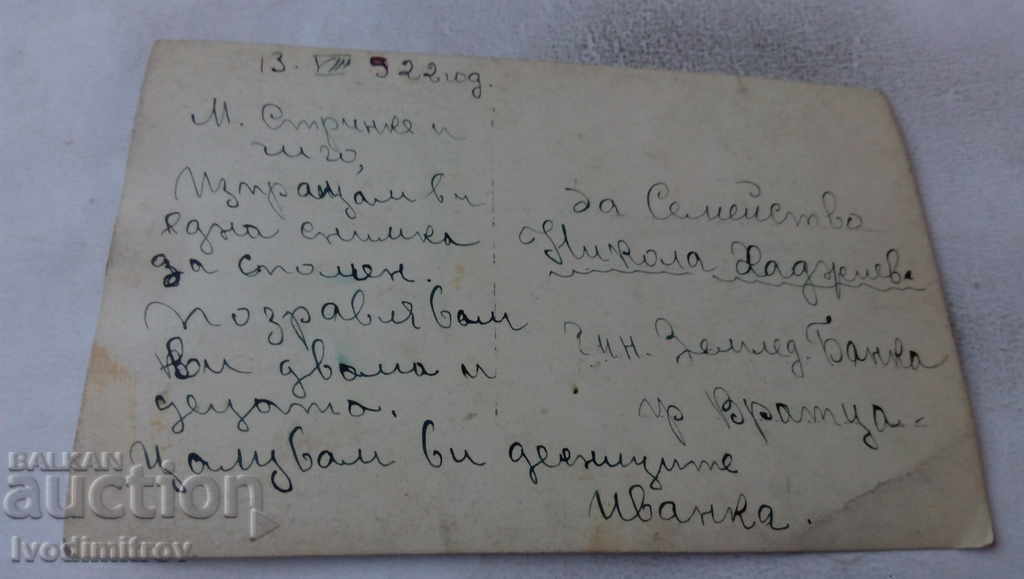 13. VIII 922 год.
М. Стринке и
чичо,
Изпращам ви
една снимка
за спомен.
Поздравлявам
Ви двама и
децата.
Цалувам ви десниците
Иванка.
За Семейство
Никола Хаджиева
чин. Землед. Банка
гр Вратца
BALKAN
auction
Ivodimitrov